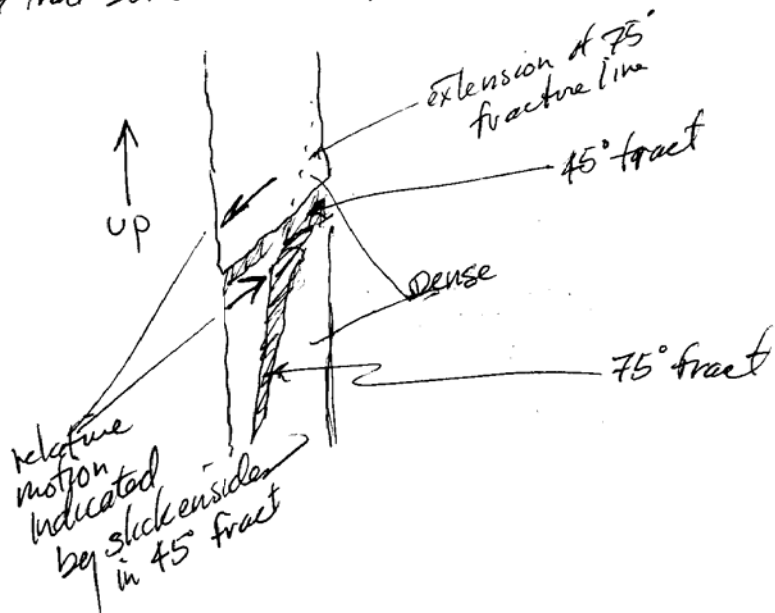 extension of 75°
fracture line
45° fract
up
Dense
75° fract
relative
motion
Indicated
by slickensides
in 45° fract